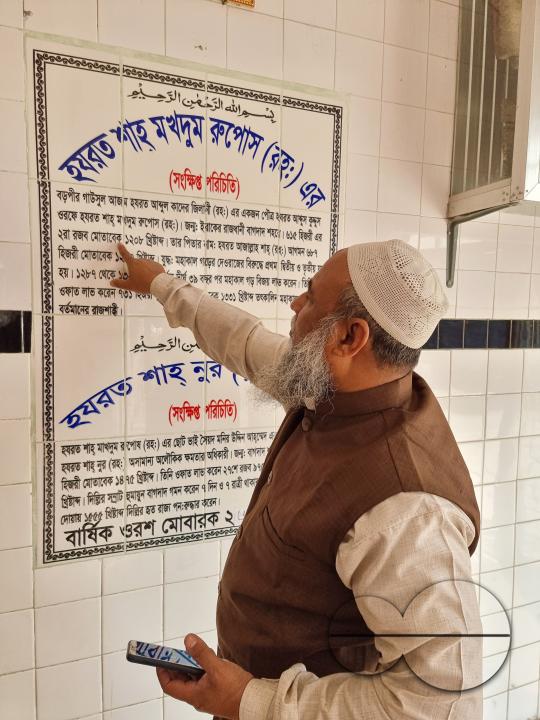 بسم الله الرحمن الرحيم
হযরত শাহ্ মখদুম রুপোস (রহঃ) এর
(সংক্ষিপ্ত পরিচিতি)
বড়পীর গাউসুল আজম হযরত আব্দুল কাদের জিলানী (রহঃ) এর একজন পৌত্র হযরত আব্দুল কুদ্দুস
ওরফে হযরত শাহ্ মখদুম রুপোস (রহঃ)। জন্মঃ ইরাকের রাজধানী বাগদাদ শহরে। ৬১৫ হিজরী এর
২রা রজব মোতাবেক ১২০৮ খ্রিষ্টাব্দ। তার পিতার নামঃ হযরত আজাল্লাহ শাহ্ (রহঃ) আগমন ৬৮৭
হিজরী মোতাবেক খ্রিষ্টাব্দ। যুদ্ধঃ মহাকাল গড়ের দেওরাজের বিরুদ্ধে প্রথম দ্বিতীয় ও তৃতীয়
হয়। ১২৮৭ থেকে দীর্ঘ ৩৯ বৎসর পর মহাকাল গড় বিজয় লাভ করেন।
ওফাত লাভ করেন ৭৩১ ১৩৩১ খ্রিষ্টাব্দ তৎকালিন
বর্তমানের রাজশাহী।
الرحمن الرحيم
হযরত শাহ্ নুর
(সংক্ষিপ্ত পরিচিতি)
হযরত শাহ্ মাখদুম রুপোষ (রহঃ) এর ছোট ভাই সৈয়দ মনির উদ্দিন আহম্মেদ
হযরত শাহ্ নুর (রহঃ) অসামান্য অলৌকিক ক্ষমতার অধিকারী। জন্মঃ বাগদাদ
হিজরী মোতাবেক ১৪৭৫ খ্রিষ্টাব্দ। তিনি ওফাত লাভ করেন ২৭শে রজব
খ্রিষ্টাব্দ। দিল্লির সম্রাট হুমায়ুন বাগদাদ গমন করেন ৭ দিন ও ৭ রাত্রী
দোয়ায় ১৫৫৫ খ্রিষ্টাব্দ দিল্লির হৃত রাজ্য পুনঃরুদ্ধার করেন।
বার্ষিক ওরশ মোবারক ২